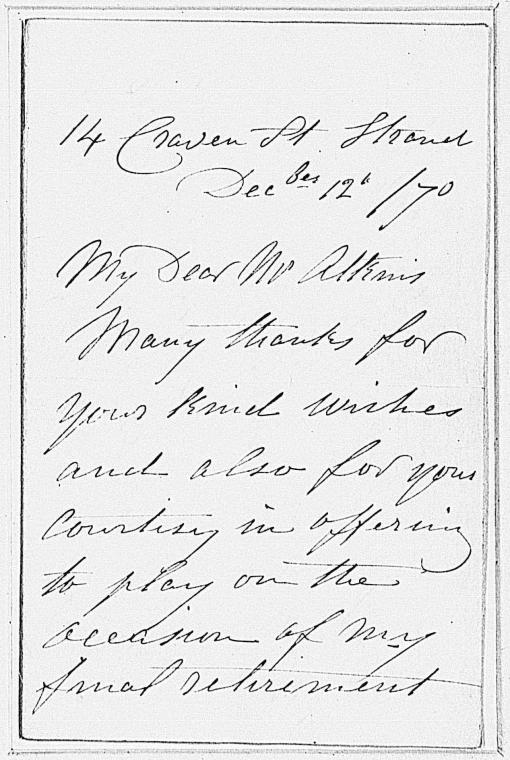 14 Craven St. Strand
Dec ber 12th /70
My Dear Mr Atkins
Many thanks for
your kind wishes
and also for your
Courtisy in offering
to play on the
occasion of my
final retirement